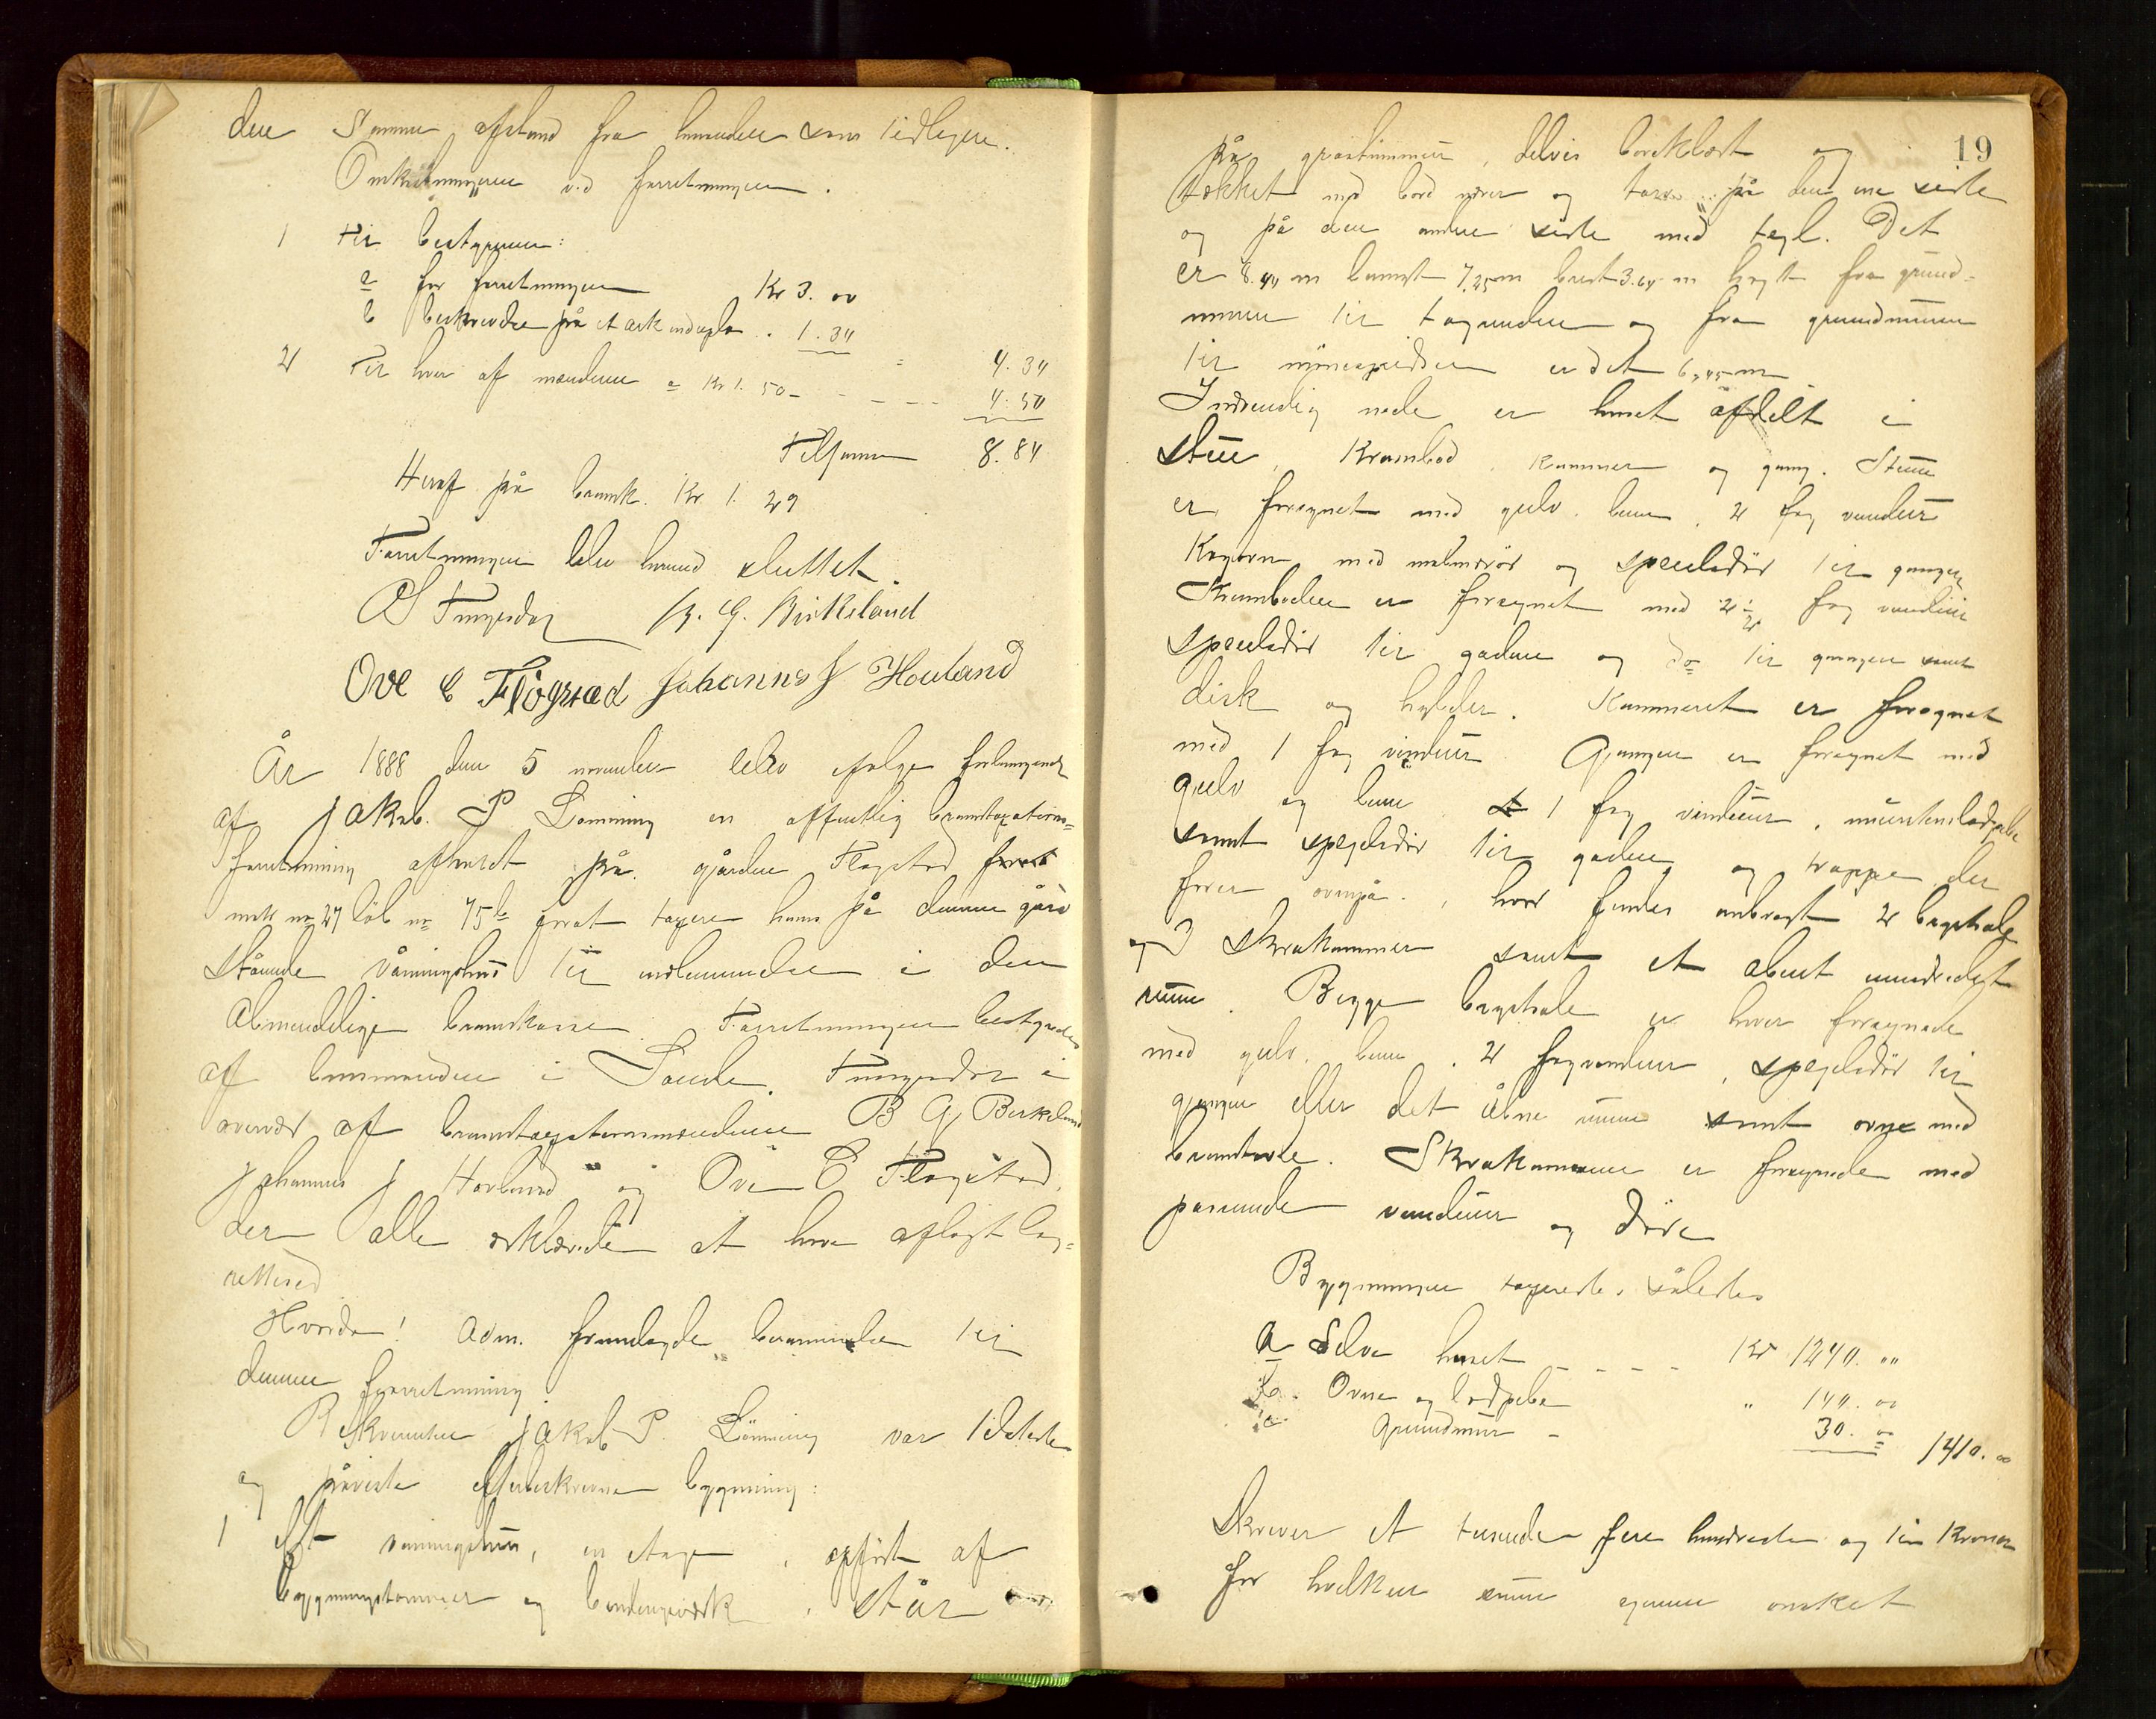 den samme afstand fra hverandre som tidligere.
Omkostningerne ved forretningen.
1 Til bestyreren:
a for forretningen Kr 3. 00
b beskrivelse på et ark 1.34 4.34
2 Til hver af mændene a Kr 1. 50 - - - - - 4.50
Tilsammen 8.84
Heraf på brandk. Kr. 1. 29
Forretningen blev hermed sluttet.
Tungesdal B. G. Birkeland
Ove E Flögstad Johannes J Hovland
År 1888 den 5 november blev ifølge forlangende
af Jakob. P Lönning en offentlig brandtaxations=
forretning afholdt på gården Flogstad
matr no 27 löb no 75b forat taxere hans på denne gård
stående våningshus til indlemmelse i den
Almindelige brandkasse. Forretningen bestyredes
af lensmanden i Saude. Tungesdal i
overvær af brandtaxationsmændene B G Birkeland
Johannes J Hovland og Ove E Flogstad.
der alle erklærede at have aflagt lag=
retteed
Hvorda! Adm. fremlagde berammelse til
denne forretning
Rekvirenten Jakob P. Lönning var tilstede
og påviste efterbeskrevne bygning:
1 Et våningshus, en etage, opført af
bygningstømmer og bindingsværk, står
19
på gråstensmur, delvis bordklædt og
tækket med bord næver og torv på den ene side
og på den anden side med tegl. Det
er 8.40 m langt 7,25 m bredt 3.64 m høgt fra grund=
muren til tagrenden og fra grundmuren
til mønespidsen er det 6,45 m
Indvendig nede er huset afdelt i
stue, Krambod, Kammer og gang. Stuen
er forsynet med gulv, 2 fag vinduer
Kogovn med og speiledör til gangen
Kramboden er forsynet med 2 1/2 fag vinduer
speiledör til gaden og do til gangen samt
disk og hylder. Kammeret er forsynet
med 1 fag vinduer Gangen er forsynet med
gulv og 1 fag vinduer, murstenslodpibe
samt spegledör til gaden og trappe der
fører ovenpå, hvor findes anbragt 2 bagstale
og 3 skrakammer samt et åbent uindredet
rum. Begge bagstale er hver forsynede
med gulv, 2 fag vinduer, spegledör til
gangen eller det åbne rum samt ovne med
Skrakammerne er forsynede med
passende vinduer og döre
Bygningen taxeredes således
a Selve huset - - - - Kr 1240. "
b. Ovne og lodpibe " 140. 00
c Grundmur - 30. 00 1410. 00
Skriver et tusende fire hundrede og ti Kroner
for hvilken sum eieren ønsket